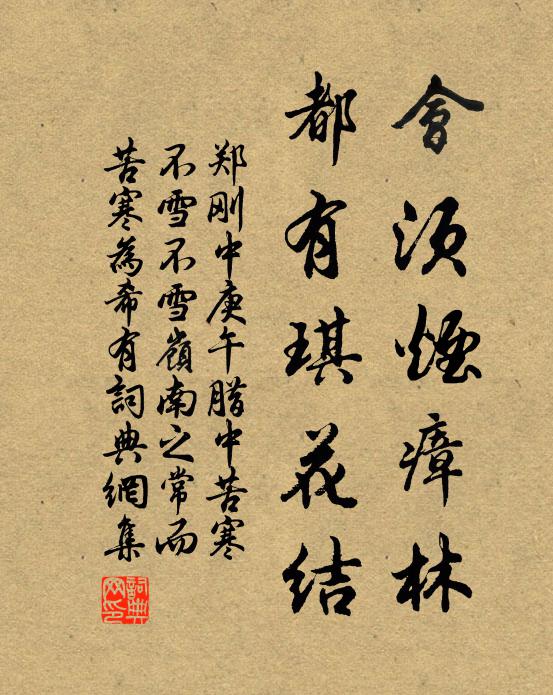 會須煙瘴林
都有琪花结
郑刚中庚午腊中苦寒
不雪不雪嶺南之常而
苦寒為希有詞典網集
詞典
网印